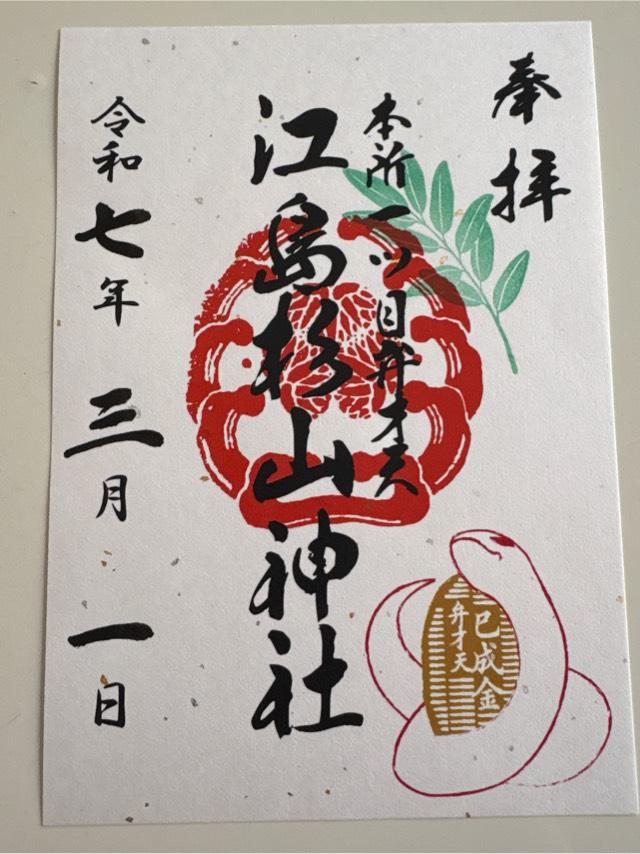 奉拝
本所一ツ目弁才天
江島杉山神社
令和七年三月一日
巳成金
弁才天